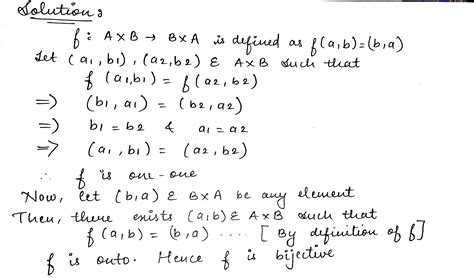 Solution:
f : A×B → B×A is defined as f(a,b)=(b,a)
Let (a1, b1), (a2,b2) ε A×B such that
f (a1,b1) = f(a2, b2)
=> (b1, a1) = (b2, a2)
=> b1 = b2 & a1 = a2
=> (a1, b1) = (a2, b2)
∴ f is one-one
Now, let (b,a) ε B×A be any element
Then, there exists (a,b) ε A×B such that
f(a,b) = (b,a) .... [ By definition of f]
f is onto. Hence f is bijective